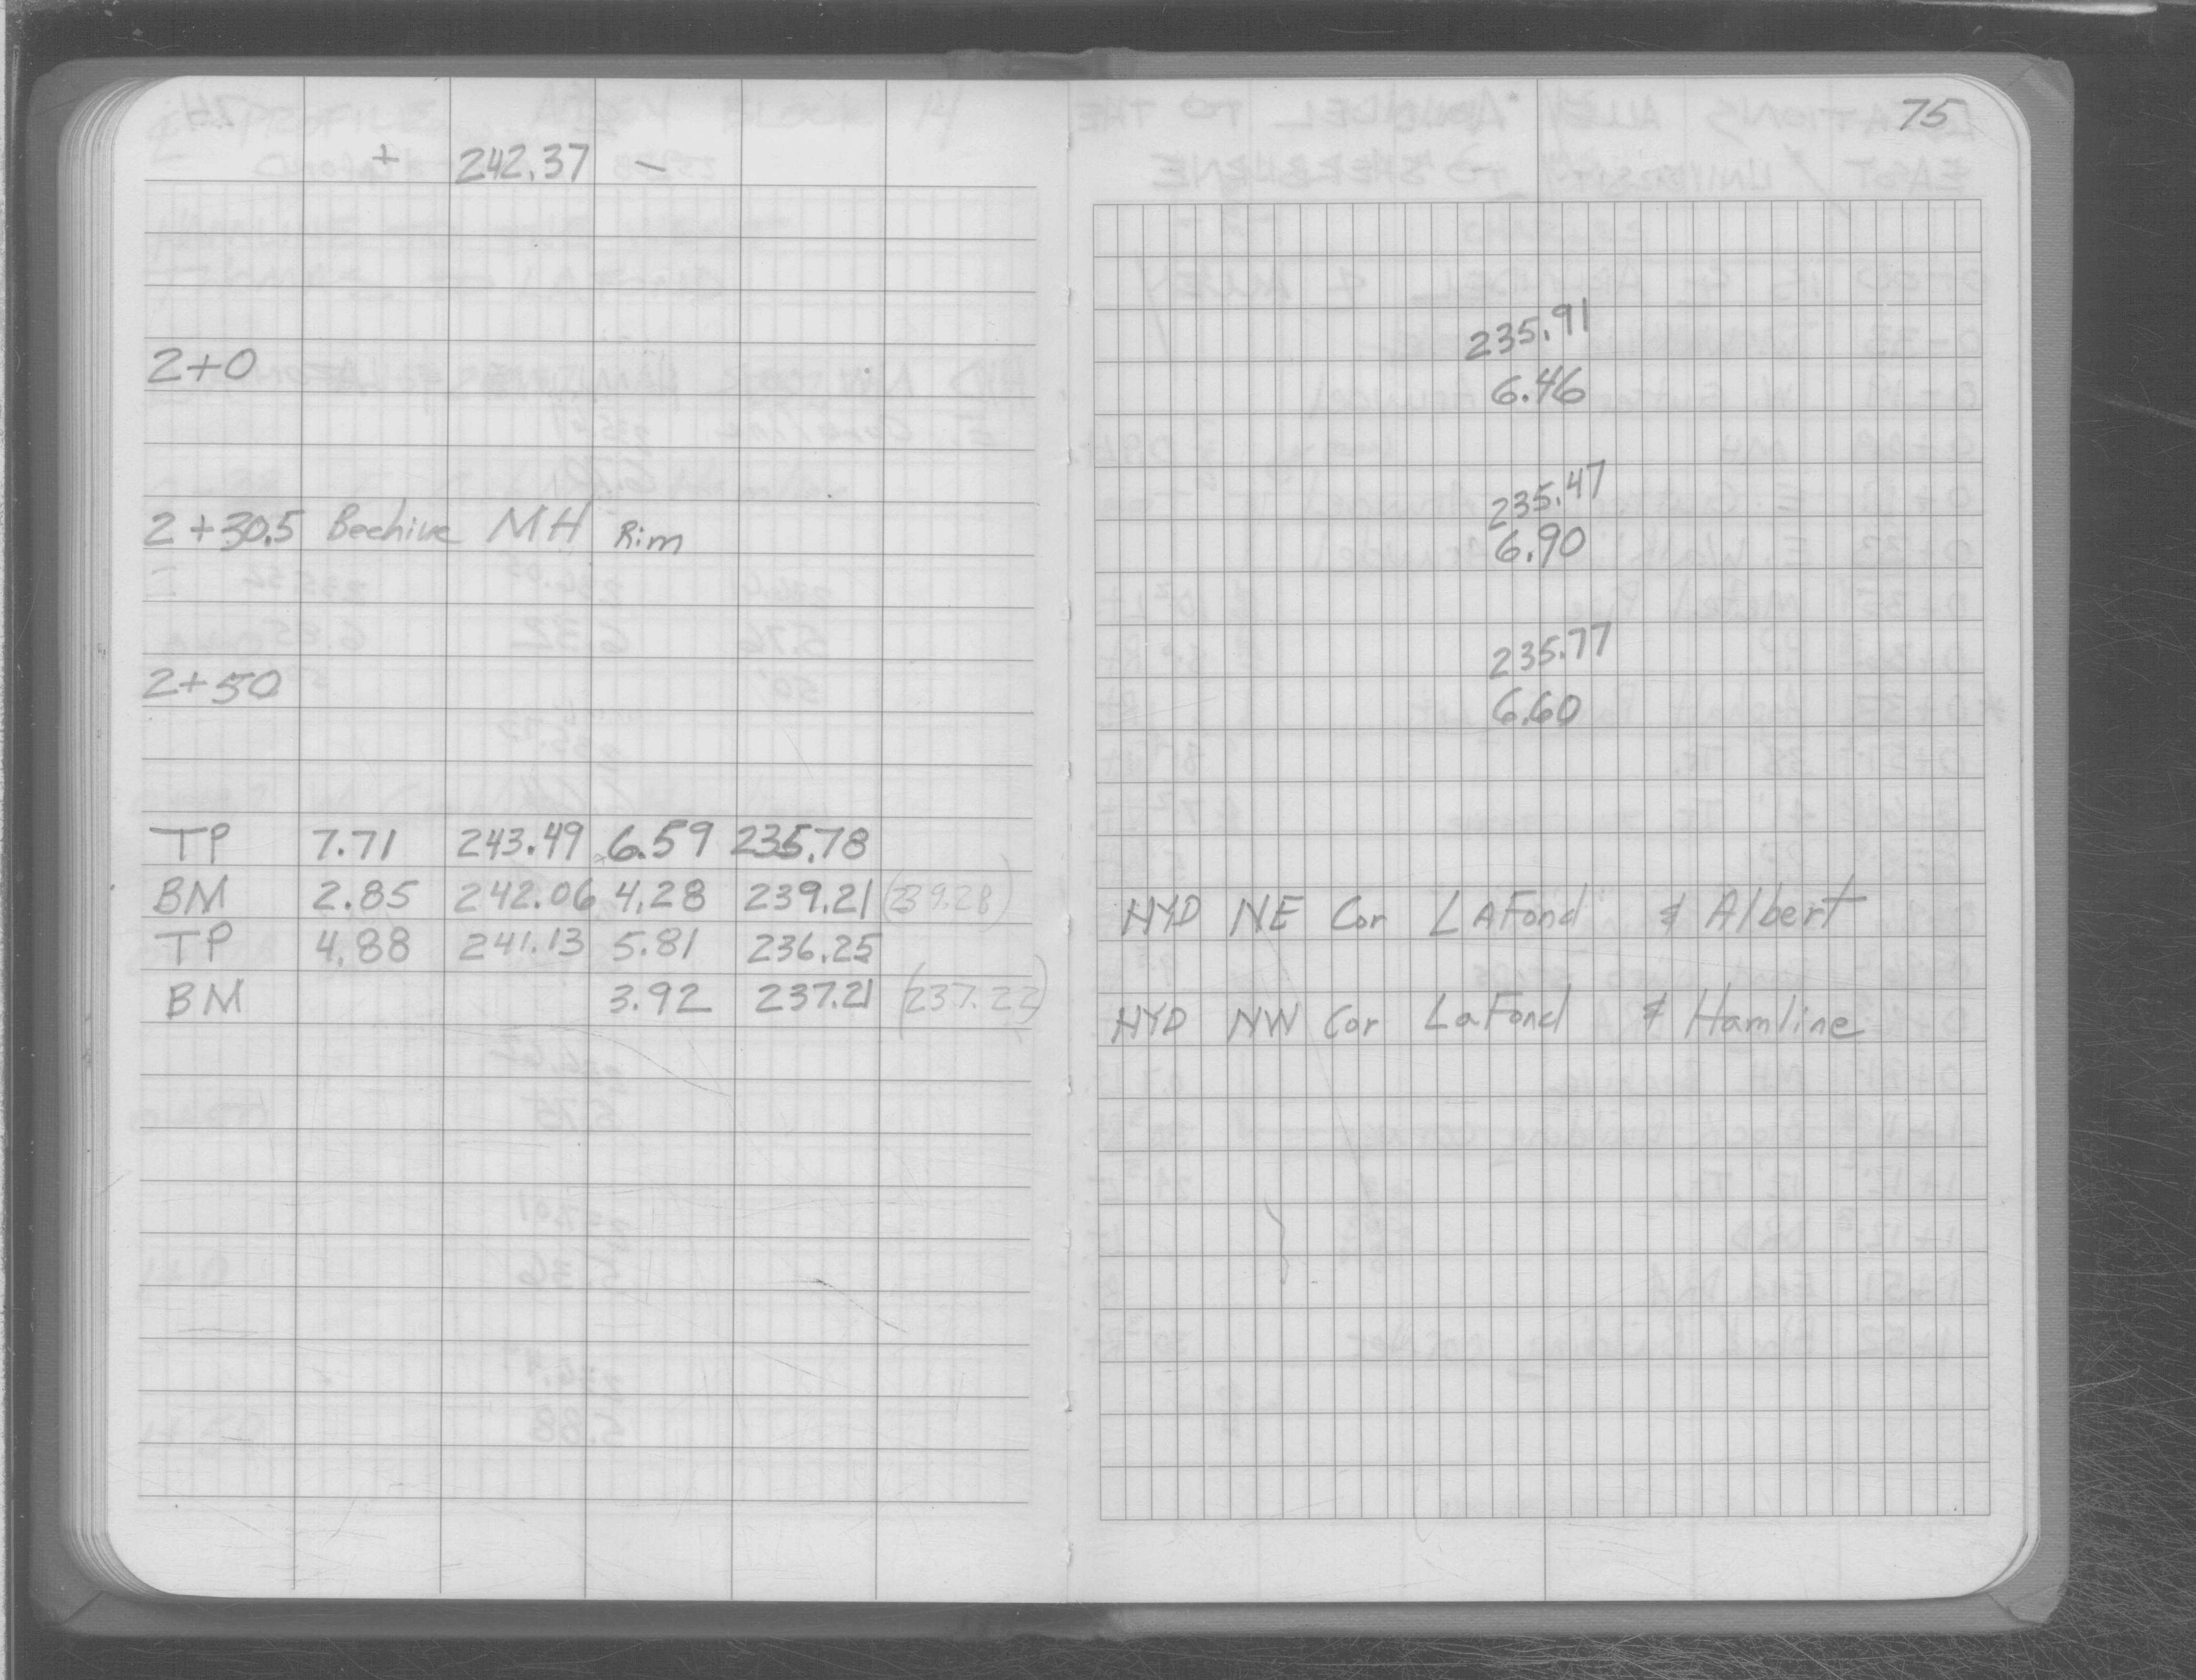 75
+ 242.37 -
235.91
2+0 6.46
235.47
2+30.5 Beehive MH Rim 6.90
235.77
2+50 6.60
TP 7.71 243.49 6.59 235.78
BM 2.85 242.06 4.28 239.21 (239.28) HYD NE Cor LaFond & Albert
TP 4.88 241.13 5.81 236.25
BM 3.92 237.21 (237.22) HYD NW Cor LaFond & Hamline